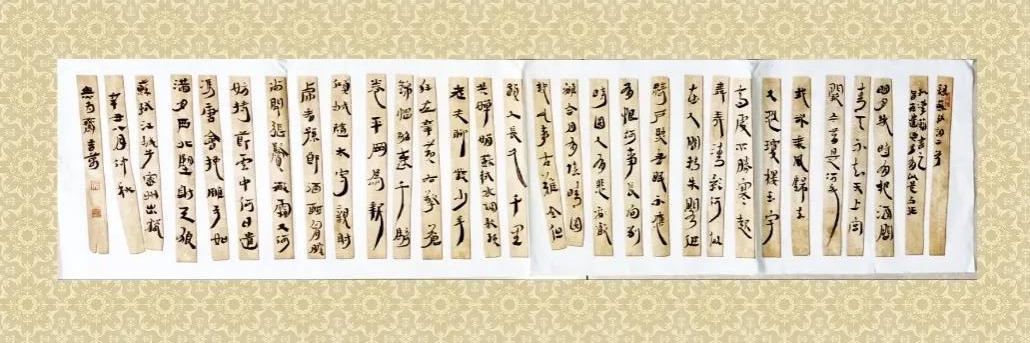 明月几时有把酒问
青天不知天上宫
阙今夕是何年
我欲乘风归去
又恐琼楼玉宇
高处不胜寒起
舞弄清影何似
在人间转朱阁低
绮户照无眠不应
有恨何事长向别
时圆人有悲欢离
合月有阴晴圆
缺此事古难全但
愿人长久千里
共婵娟苏轼水调歌头
老夫聊发少年
狂左牵黄右擎苍
锦帽貂裘千骑
卷平冈为报
倾城随太守亲射
虎看孙郎酒酣胸胆
尚开张鬓微霜又何
妨持节云中何日遣
冯唐会挽雕弓如
满月西北望射天狼
苏轼江城子密州出猎
辛丑八月计秋